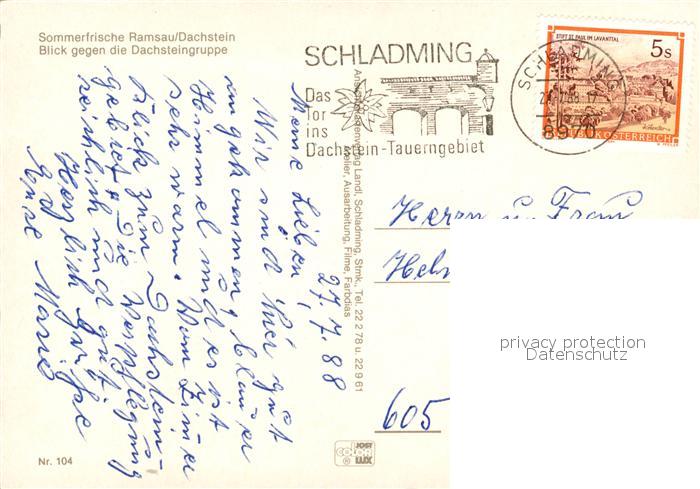 Sommerfrische Ramsau/Dachstein
Blick gegen die Dachsteingruppe
SCHLADMING
Das
Tor
ins
Dachstein-Tauerngebiet
SCHLADMING
8970
STIFT ST. PAUL IM LAVANTTAL
5s
REPUBLIK ÖSTERREICH
27.7.88
Meine Lieben,
Wir sind hier gut
angekommen blauer
Himmel und es ist
sehr warm. Vom Zimmer
Blick zum Dachstein-
gebiet. Die Verpflegung
reichlich und gut.
Herzlich grüßt
Eure Marie
Landl, Schladming, Stmk., Tel. 22 2 78 u. 22 9 61
Ausarbeitung, Filme, Farbdias
Herrn u. Frau
605
privacy protection
Datenschutz
Nr. 104
JOST
COLOR
LUX